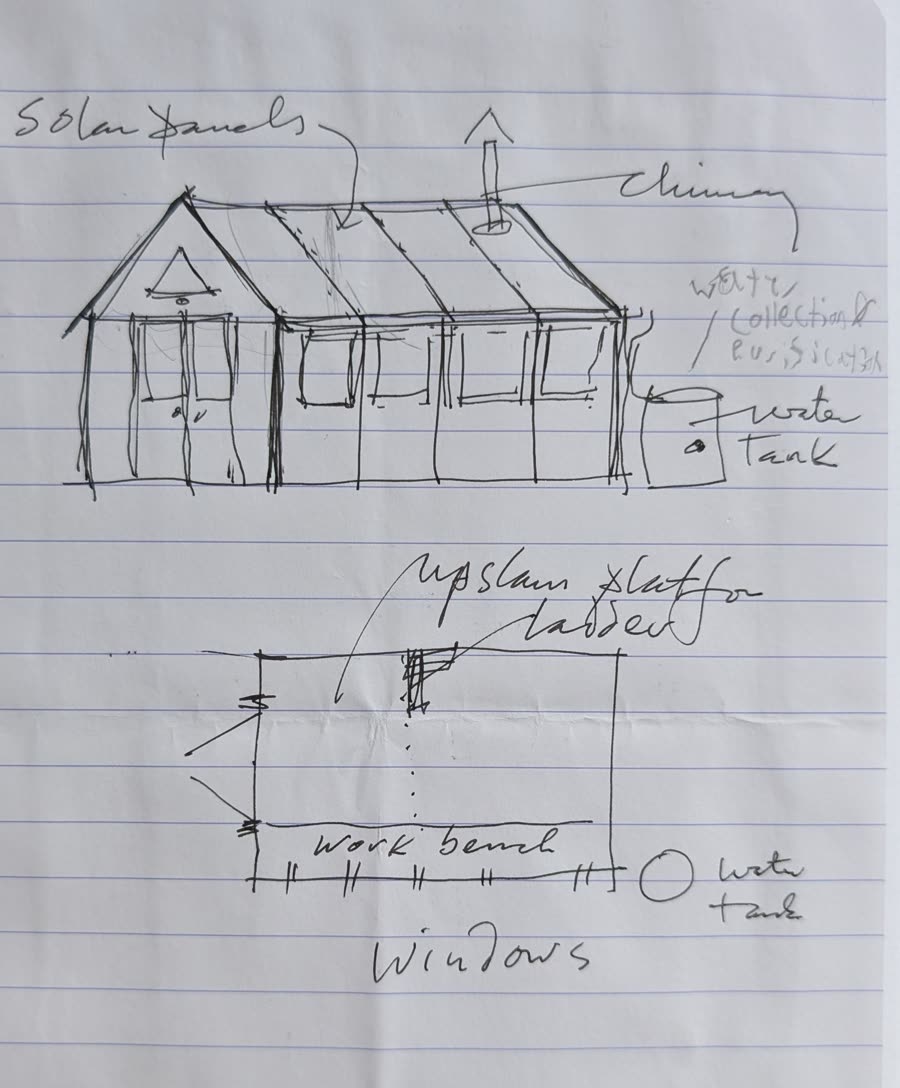 Solar panels
Chimney
water
collection &
purification
water
Tank
upstairs platform
ladder
work bench
water
tank
Windows